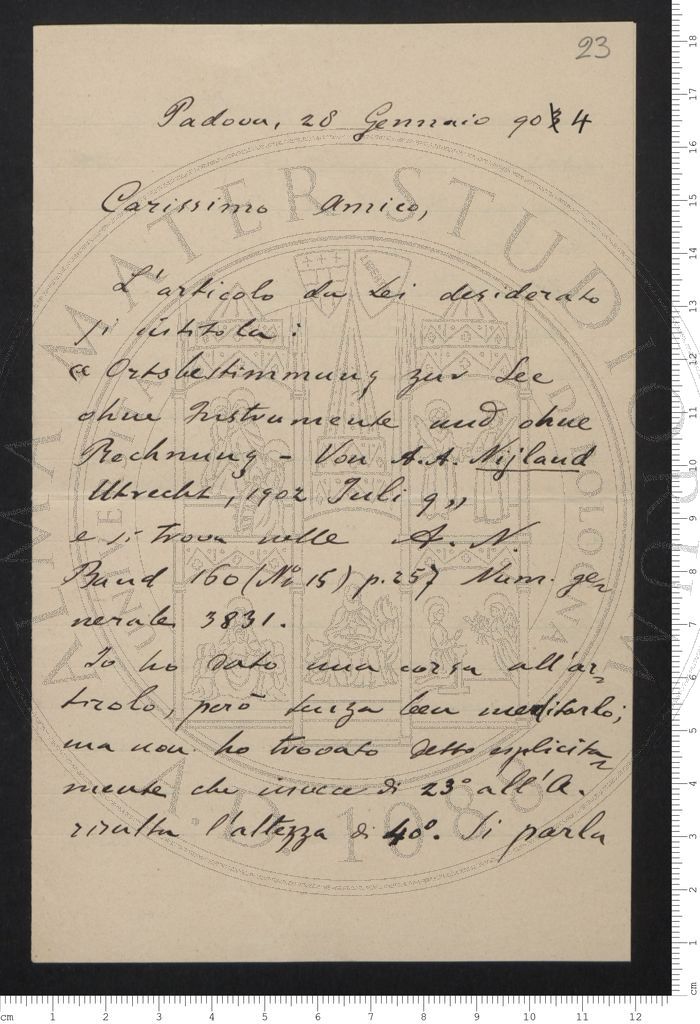 23
Padova, 28 Gennaio 904
Carissimo Amico,
L'articolo da Lei desiderato
si intitola:
« Ortsbestimmung zur See
ohne Instrumente und ohne
Rechnung - Von A. A. Nijland
Utrecht, 1902 Juli 9 »
e si trova nelle A. N.
Band 160 (No 15) p. 257 Num. ge-
nerale 3831.
Io ho dato una corsa all'ar-
ticolo, però senza ben meditarlo;
ma non ho trovato detto esplicita-
mente che invece di 23° all'A.
risulta l'altezza di 40°. Si parla
ALMA MATER STUDIORUM
A.D. 1088